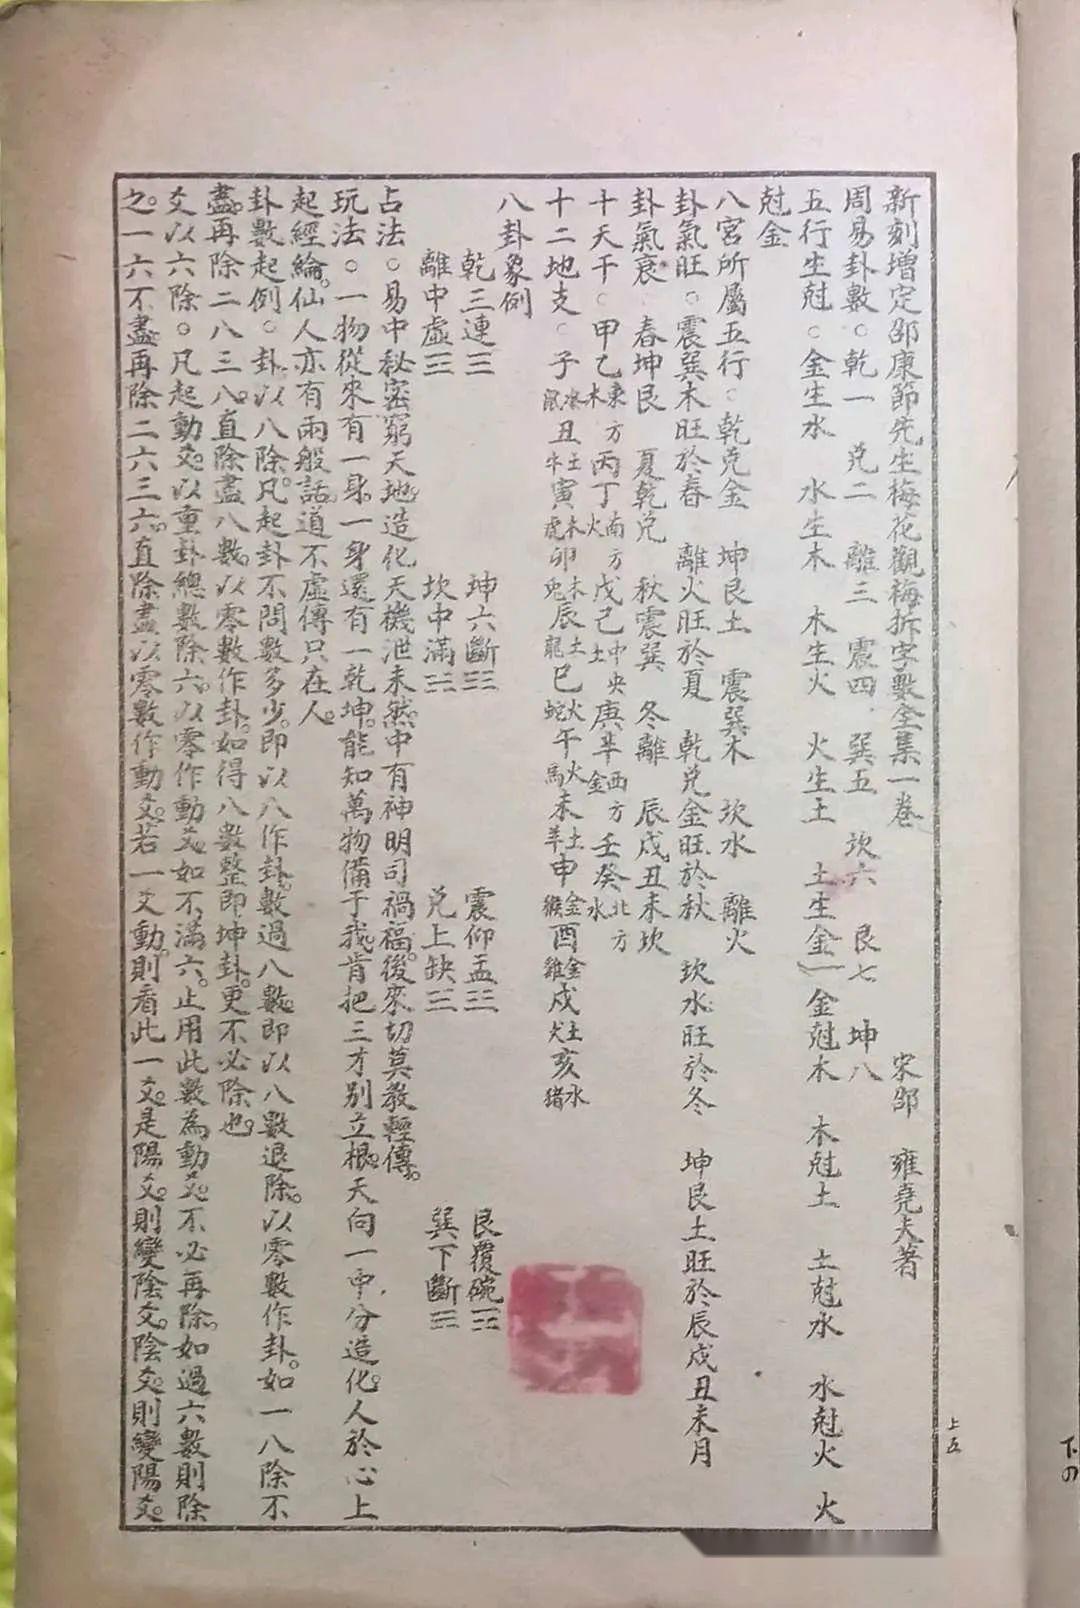 新刻增定邵康節先生梅花觀梅拆字數全集一卷　宋邵　雍堯夫著
周易卦數。乾一　兌二　離三　震四　巽五　坎六　艮七　坤八
五行生尅。金生水　水生木　木生火　火生土　土生金　金尅木　木尅土　土尅水　水尅火　火
尅金
八宮所屬五行。乾兌金　坤艮土　震巽木　坎水　離火
卦氣旺。震巽木旺於春　離火旺於夏　乾兌金旺於秋　坎水旺於冬　坤艮土旺於辰戌丑未月
卦氣衰　春坤艮　夏乾兌　秋震巽　冬離　辰戌丑未坎
十天干。甲乙東方木丙丁南方火戊己中央土庚辛西方金壬癸北方水
十二地支。子水鼠丑土牛寅木虎卯木兔辰土龍巳火蛇午火馬未土羊申金猴酉金雞戌土犬亥水猪
八卦象例
乾三連☰　坤六斷☷　震仰盂☳　艮覆碗☶
離中虛☲　坎中滿☵　兌上缺☱　巽下斷☴
占法。易中秘密窮天地。造化天機泄未然。中有神明司禍福。後來切莫教輕傳。
玩法。一物從來有一身。一身還有一乾坤。能知萬物備于我。肯把三才別立根。天向一中分造化。人於心上
起經綸。仙人亦有兩般話。道不虛傳只在人。
卦數起例。卦以八除。凡起卦不問數多少。即以八作卦數。過八數。即以八數退除。以零數作卦。如一八除不
盡。再除二八三八。直除盡八數。以零數作卦。如得八數整即坤卦。更不必除也。
爻以六除。凡起動爻。以重卦總數除六。以零作動爻。如不滿六。止用此數為動爻。不必再除。如過六數則除
之。一六不盡。再除二六三六。直除盡以零數作動爻。若一爻動。則看此一爻。是陽爻。則變陰爻。陰爻。則變陽爻。
上五
下の